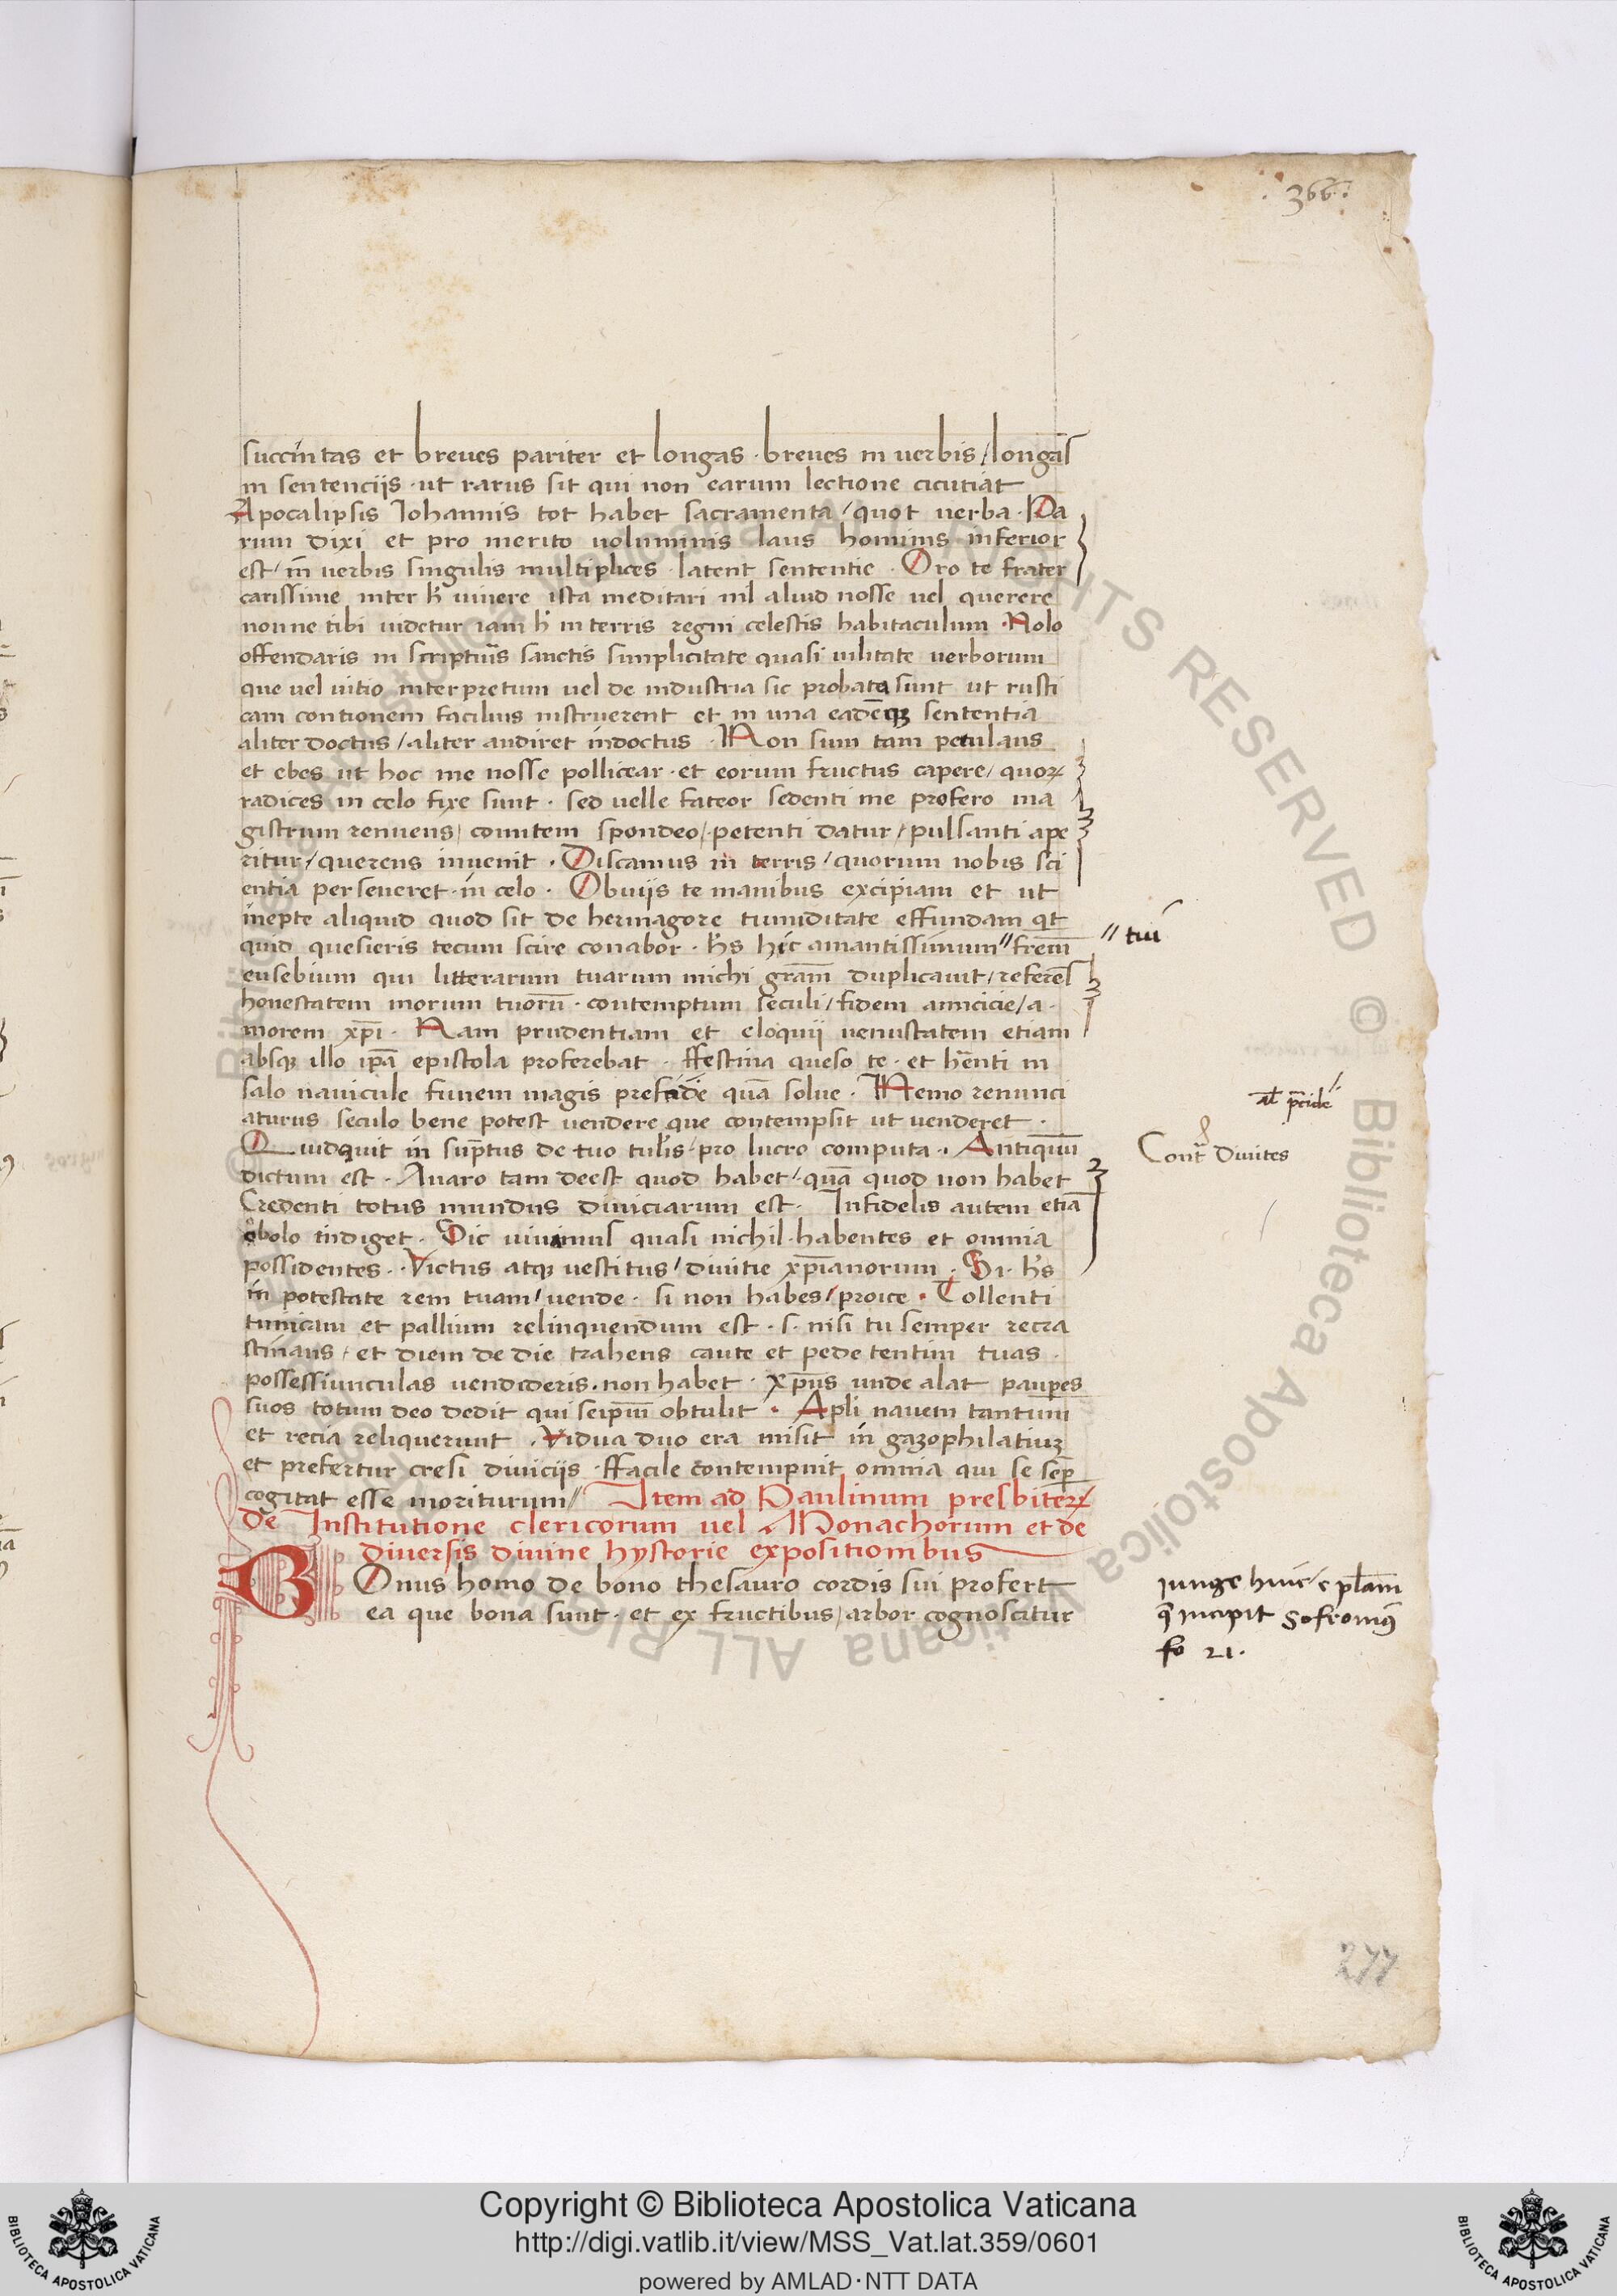 .366.
succintas et breves pariter et longas · breves in verbis / longas
in sentenciis · ut rarus sit qui non earum lectione cicutiat
Apocalipsis Iohannis tot habet sacramenta / quot verba · Pa
rum dixi et pro merito voluminis laus hominis inferior
est / in verbis singulis multiplices latent sententie · Oro te frater
carissime inter h̄ vivere ista meditari nil aliud nosse vel querere
nonne tibi videtur iam h̄ in terris regni celestis habitaculum · Nolo
offendaris in scripturis sanctis simplicitate quasi vilitate verborum
que vel vitio interpretum vel de industria sic probata sunt ut rusti
cam contionem facilius instruerent et in una eadēq₃ sententia
aliter doctus / aliter audiret indoctus · Non sum tam petulans
et ebes ut hoc me nosse pollicear · et eorum fructus capere / quoꝝ
radices in celo fixe sunt · sed velle fateor sedenti me profero ma
gistrum renuens / comitem spondeo / · petenti datur / pulsanti ape
ritur / querens invenit · Discamus in terris / quorum nobis sci
entia perseveret · in celo · Obviis te manibus excipiam et ut
inepte aliquid quod sit de hermagore tumiditate effundam qt
quid quesieris tecum scire conabor · hs̄ hic amantissimum // frēm // tui
eusebium qui litterarum tuarum michi grām duplicavit / referēs
honestatem morum tuorū · contemptum seculi / fidem amicicie / a
morem xp̄i · Nam prudentiam et eloquii venustatem etiam
absq₃ illo ip̄a epistola proferebat · ffestina queso te · et hēnti in
salo navicule funem magis prescide quā solve · Nemo renunci
al̄ p̄cide
aturus seculo bene potest vendere que contempsit ut venderet ·
Quidquit in sūptus de tuo tulis / pro lucro computa · Antiquū
Cont̄ Divites
dictum est · Avaro tam deest quod habet / quā quod non habet
Credenti totus mundus diviciarum est · Infidelis autem etiā
obolo indiget · Sic vivamus quasi nichil · habentes et omnia
possidentes · Victus atq₃ vestitus / divitie xp̄ianorum · Si · hs̄
in potestate rem tuam / vende · si non habes / proice · Tollenti
tunicam et pallium relinquendum est · s · nisi tu semper recra
stinans / et diem de die trahens caute et pede tentim tuas
possessiunculas vendideris · non habet · xp̄us unde alat paup̄es
suos totum deo dedit qui seip̄m obtulit · Apli navem tantum
et recia reliquerunt · Vidua duo era misit in gazophilatiuꝫ
et prefertur cresi diviciis · ffacile contempnit omnia qui se sēp̄
cogitat esse moriturum // Item ad Paulinum presbiteꝝ
de Institutione clericorum vel Monachorum et de
diversis divine hystorie expositionibus
BOnus homo de bono thesauro cordis sui profert
ea que bona sunt · et ex fructibus / arbor cognoscitur
iunge huic / eplām
q̄ incipit Sofronius
fo 21.
277
Copyright © Biblioteca Apostolica Vaticana
http://digi.vatlib.it/view/MSS_Vat.lat.359/0601
powered by AMLAD·NTT DATA
BIBLIOTECA APOSTOLICA VATICANA
BIBLIOTECA APOSTOLICA VATICANA
© Biblioteca Apostolica Vaticana ALL RIGHTS RESERVED © Biblioteca Apostolica Vaticana ALL RIGHTS RESERVED